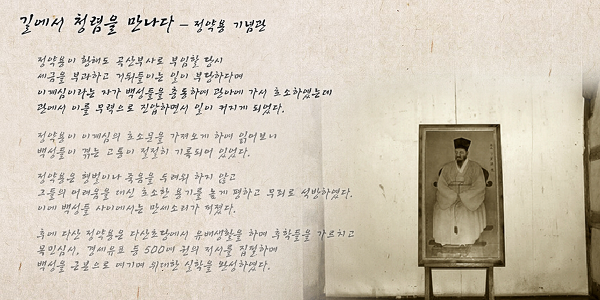 길에서 청렴을 만나다 - 정약용 기념관
정약용이 황해도 곡산부사로 부임할 당시
세금을 부과하고 거둬들이는 일이 부당하다며
이계심이라는 자가 백성들을 충동하여 관아에 가서 호소하였는데
관에서 이를 무력으로 진압하면서 일이 커지게 되었다.
정약용이 이계심의 호소문을 가져오게 하여 읽어보니
백성들이 겪는 고통이 절절히 기록되어 있었다.
정약용은 형벌이나 죽음을 두려워 하지 않고
그들의 어려움을 대신 호소한 용기를 높게 평하고 무죄로 석방하였다.
이에 백성들 사이에서는 만세소리가 터졌다.
후에 다산 정약용은 다산초당에서 유배생활을 하며 후학들을 가르치고
목민심서, 경세유표 등 500여 권의 저서를 집필하며
백성을 근본으로 여기며 위대한 실학을 완성하였다.